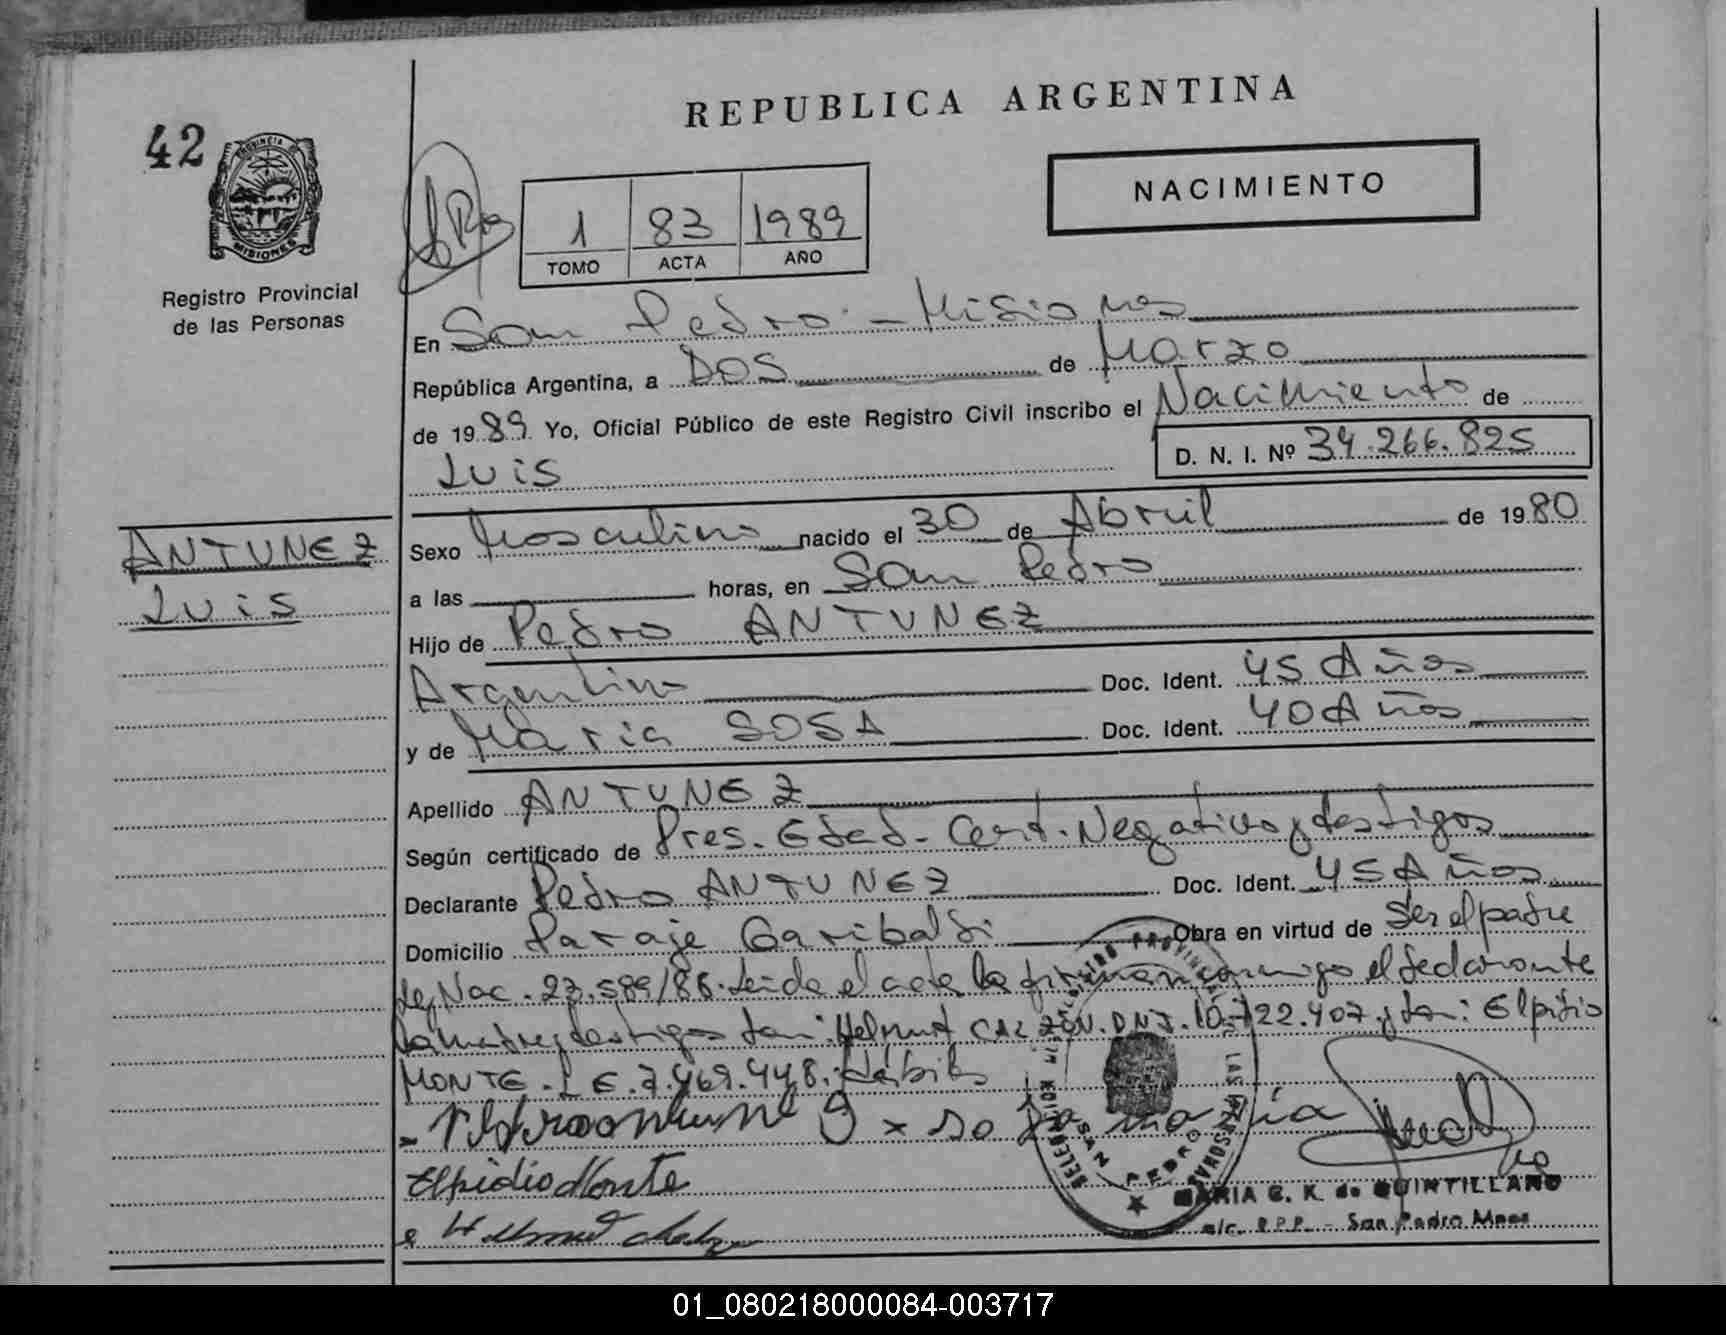 REPUBLICA ARGENTINA
42
PROVINCIA DE
MISIONES
Registro Provincial
de las Personas
NACIMIENTO
1 83 1989
TOMO ACTA AÑO
En San Pedro - Misiones
República Argentina, a DOS de Marzo
de 1989 Yo, Oficial Público de este Registro Civil inscribo el Nacimiento de
Luis
D. N. I. Nº 34.266.825
ANTUNEZ
Luis
Sexo Masculino nacido el 30 de Abril de 1980
a las horas, en San Pedro
Hijo de Pedro ANTUNEZ
Argentino Doc. Ident. 45 Años
y de Maria SOSA Doc. Ident. 40 Años
Apellido ANTUNEZ
Según certificado de Pres. Edad - Cert. Negativo y testigos
Declarante Pedro ANTUNEZ Doc. Ident. 45 Años
Domicilio Paraje Garibaldi Obra en virtud de Ser el padre
Ley Nac. 23.589/88. Leida el acta la firman conmigo el declarante
la madre y testigos Helmut DNI. 10.722.407 y Elpidio
MONTE - LE. 7.469.448. Habiles
so sa maria
Elpidio Monte
SAN PEDRO
MARIA G. K. de QUINTILLANO
a/c. R.P.P. - San Pedro Mnes
01_080218000084-003717